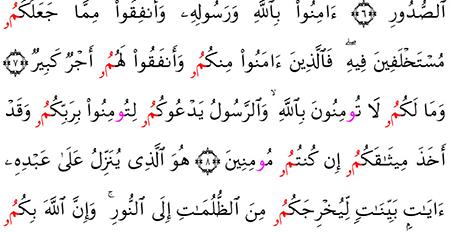 ٱلصُّدُورِ ۝٦ ءَامِنُوا۟ بِٱللَّهِ وَرَسُولِهِۦ وَأَنفِقُوا۟ مِمَّا جَعَلَكُمُۥ
مُسْتَخْلَفِينَ فِيهِۖ فَٱلَّذِينَ ءَامَنُوا۟ مِنكُمُۥ وَأَنفَقُوا۟ لَهُمُۥ أَجْرٌ كَبِيرٌ ۝٧
وَمَا لَكُمُۥ لَا تُومِنُونَ بِٱللَّهِۙ وَٱلرَّسُولُ يَدْعُوكُمُۥ لِتُومِنُوا۟ بِرَبِّكُمُۥ وَقَدْ
أَخَذَ مِيثَـٰقَكُمُۥ إِن كُنتُمُۥ مُومِنِينَ ۝٨ هُوَ ٱلَّذِى يُنَزِّلُ عَلَىٰ عَبْدِهِۦ
ءَايَـٰتٍۭ بَيِّنَـٰتٍ لِّيُخْرِجَكُمُۥ مِنَ ٱلظُّلُمَـٰتِ إِلَى ٱلنُّورِۚ وَإِنَّ ٱللَّهَ بِكُمُۥ